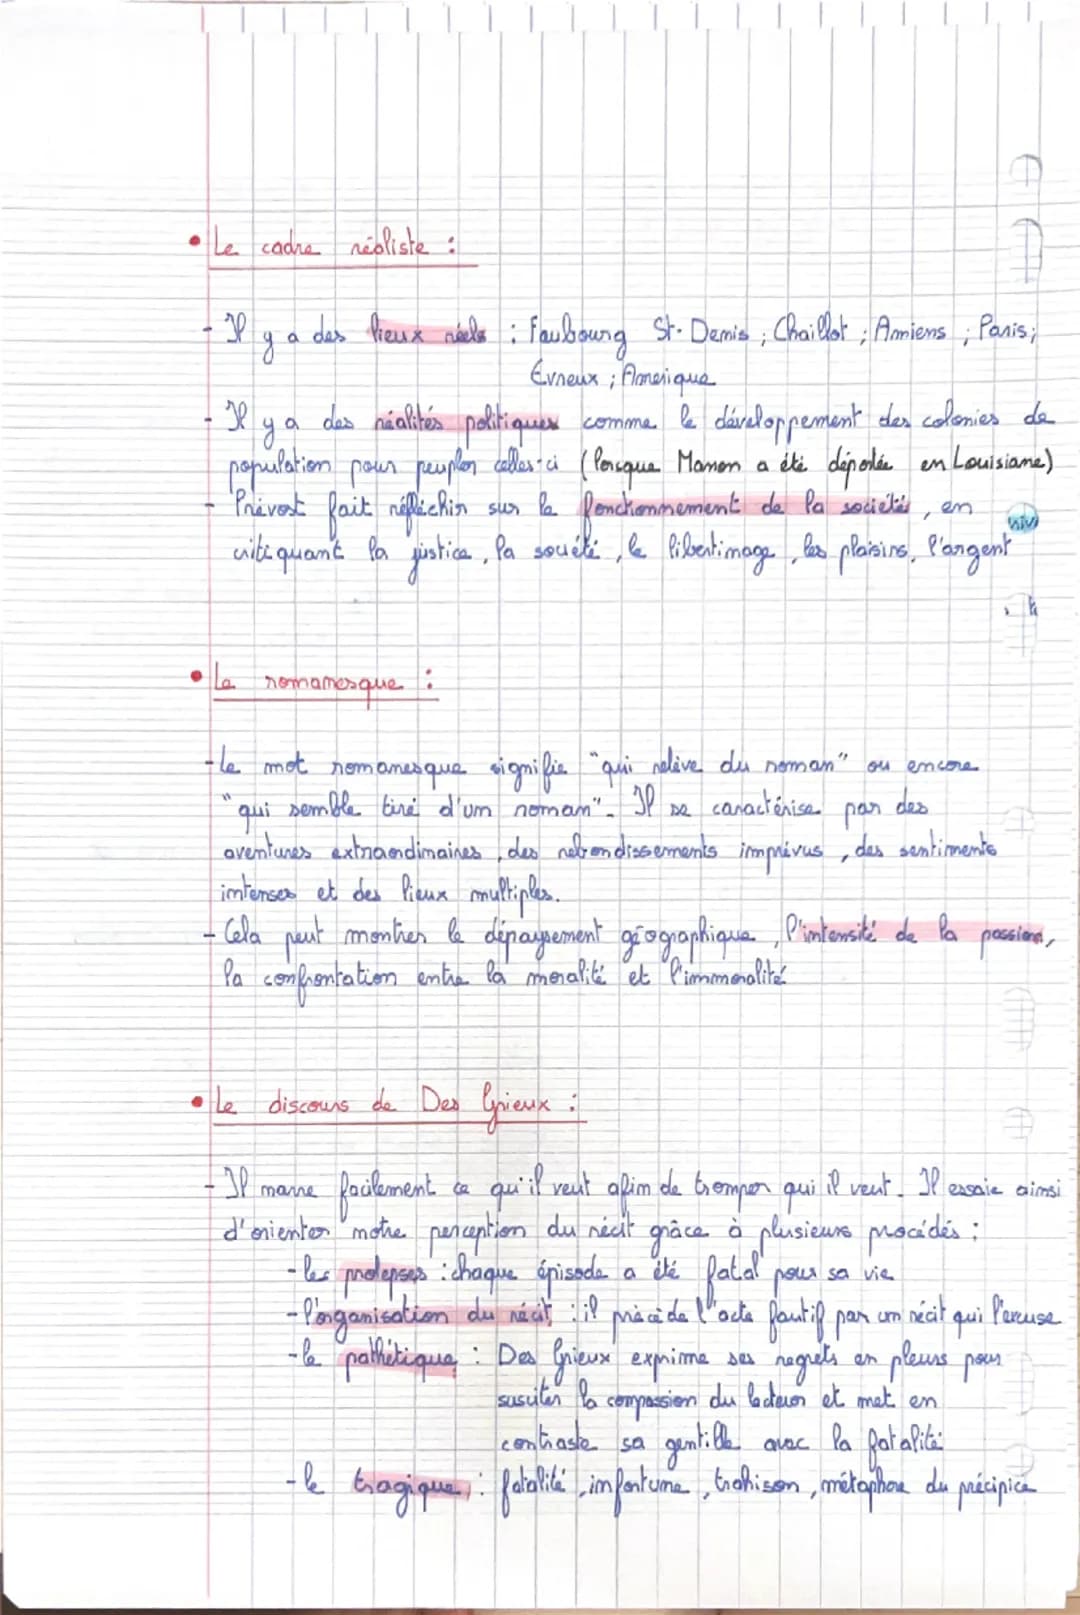 • Le cadre réaliste :
- Il y a des lieux réels : Faubourg St-Denis ; Chaillot ; Amiens ; Paris ;
Évreux ; Amérique
- Il y a des réalités politiques comme le développement des colonies de
population pour peupler celles-ci (lorsque Manon a été déportée en Louisiane)
- Prévost fait réfléchir sur le fonctionnement de la sociétés, en
critiquant la justice, la société, le libertinage, les plaisirs, l'argent
• Le romanesque :
- Le mot romanesque signifie "qui relève du roman" ou encore
"qui semble tiré d'un roman". Il se caractérise par des
aventures extraordinaires, des rebondissements imprévus, des sentiments
intenses et des lieux multiples.
- Cela peut montrer le dépaysement géographique, l'intensité de la passion,
la confrontation entre la moralité et l'immoralité
• Le discours de Des Grieux :
- Il narre facilement ce qu'il veut afin de tromper qui il veut. Il essaie ainsi
d'orienter notre perception du récit grâce à plusieurs procédés :
- les prolepses : chaque épisode a été fatal pour sa vie
- l'organisation du récit : il précède l'acte fautif par un récit qui l'excuse
- le pathétique : Des Grieux exprime ses regrets en pleurs pour
susciter la compassion du lecteur et met en
contraste sa gentille avec la fatalité
- le tragique : fatalité, infortune, trahison, métaphore du précipice